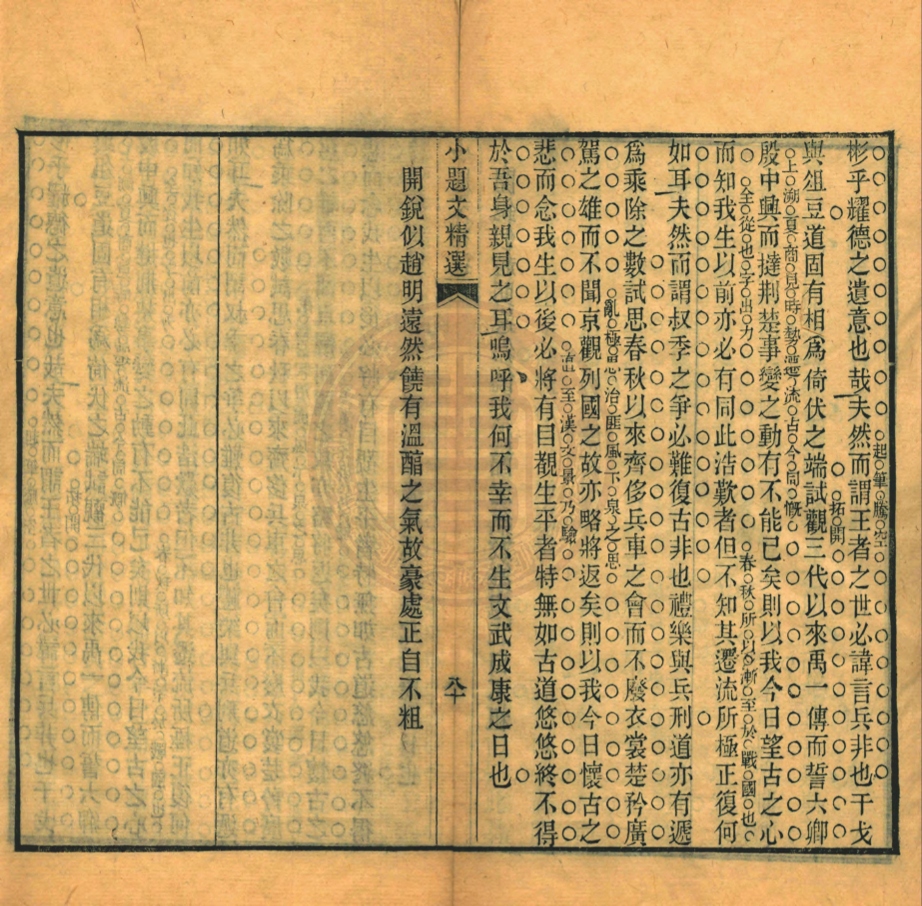 彬乎耀德之遺意也哉夫然而謂王者之世必諱言兵非也干戈
起筆騰空
拓開
與俎豆道固有相爲倚伏之端試觀三代以來禹一傳而誓六卿
上溯夏商見時勢遷流古今同慨
殷中興而撻荆楚事變之動有不能已矣則以我今日望古之心
全從也字出力
春秋所以漸至於戰國也
而知我生以前亦必有同此浩歎者但不知其遷流所極正復何
如耳夫然而謂叔季之爭必難復古非也禮樂與兵刑道亦有遞
爲乘除之數試思春秋以來齊侈兵車之會而不廢衣裳楚矜廣
亂極思治匪風下泉之思
駕之雄而不聞京觀列國之故亦略將返矣則以我今日懷古之
直至漢文景乃驗
悲而念我生以後必將有目覩生平者特無如古道悠悠終不得
於吾身親見之耳嗚呼我何不幸而不生文武成康之日也
小題文精選
八十
開銳似趙明遠然饒有溫醖之氣故豪處正自不粗